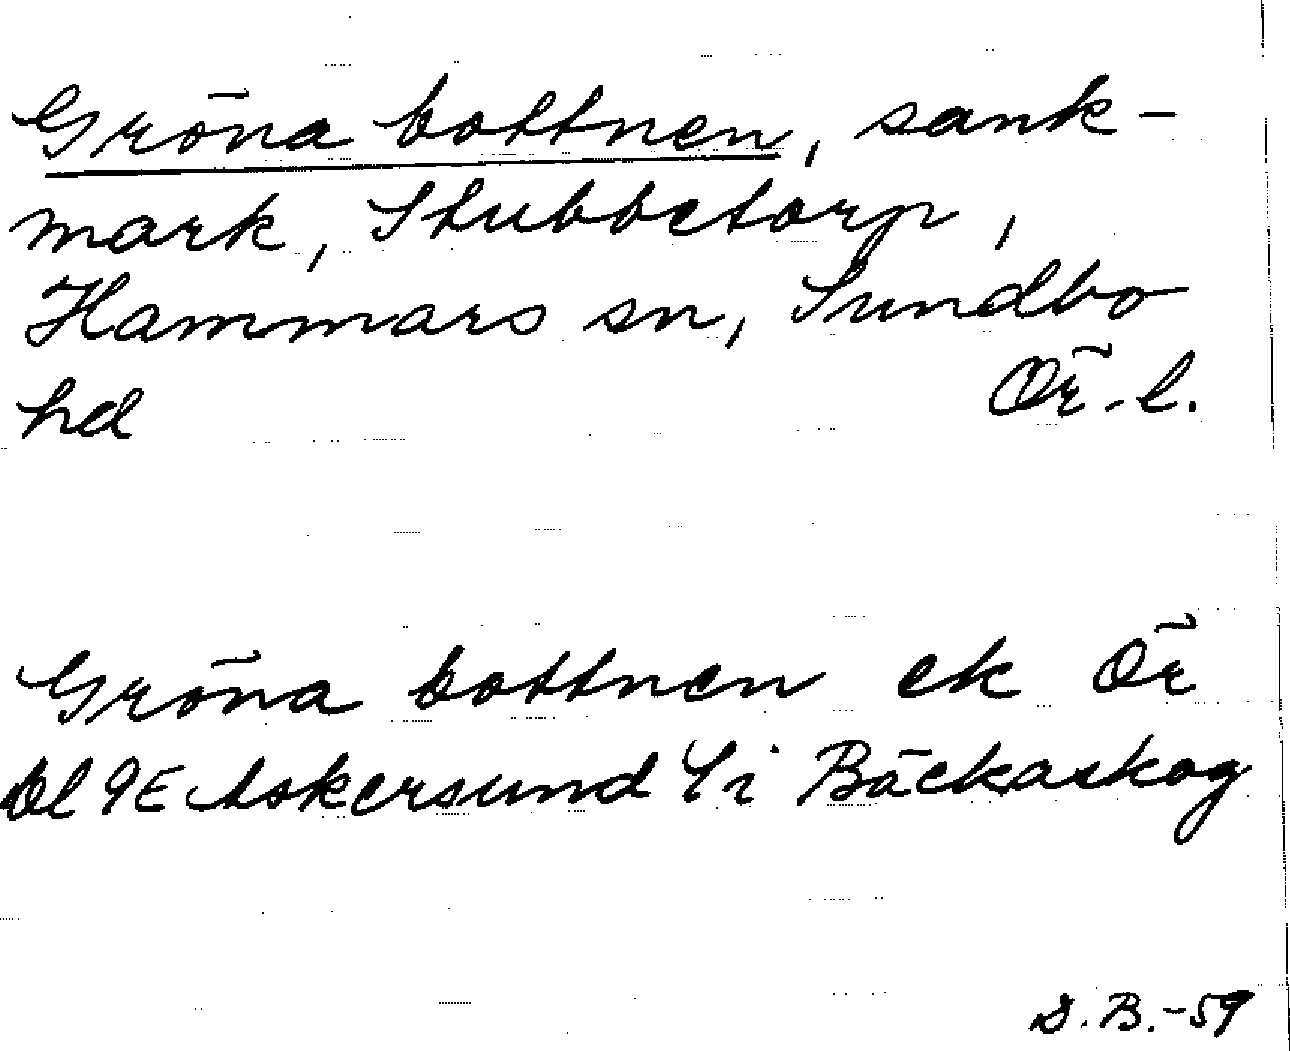 Gröna bottnen, sank-
mark, Stubbetorp,
Hammars sn, Sundbo
hd Ör. l.
Gröna bottnen ek Ör
Bl 9E Askersund 4i Bäckaskog
S.B.-59